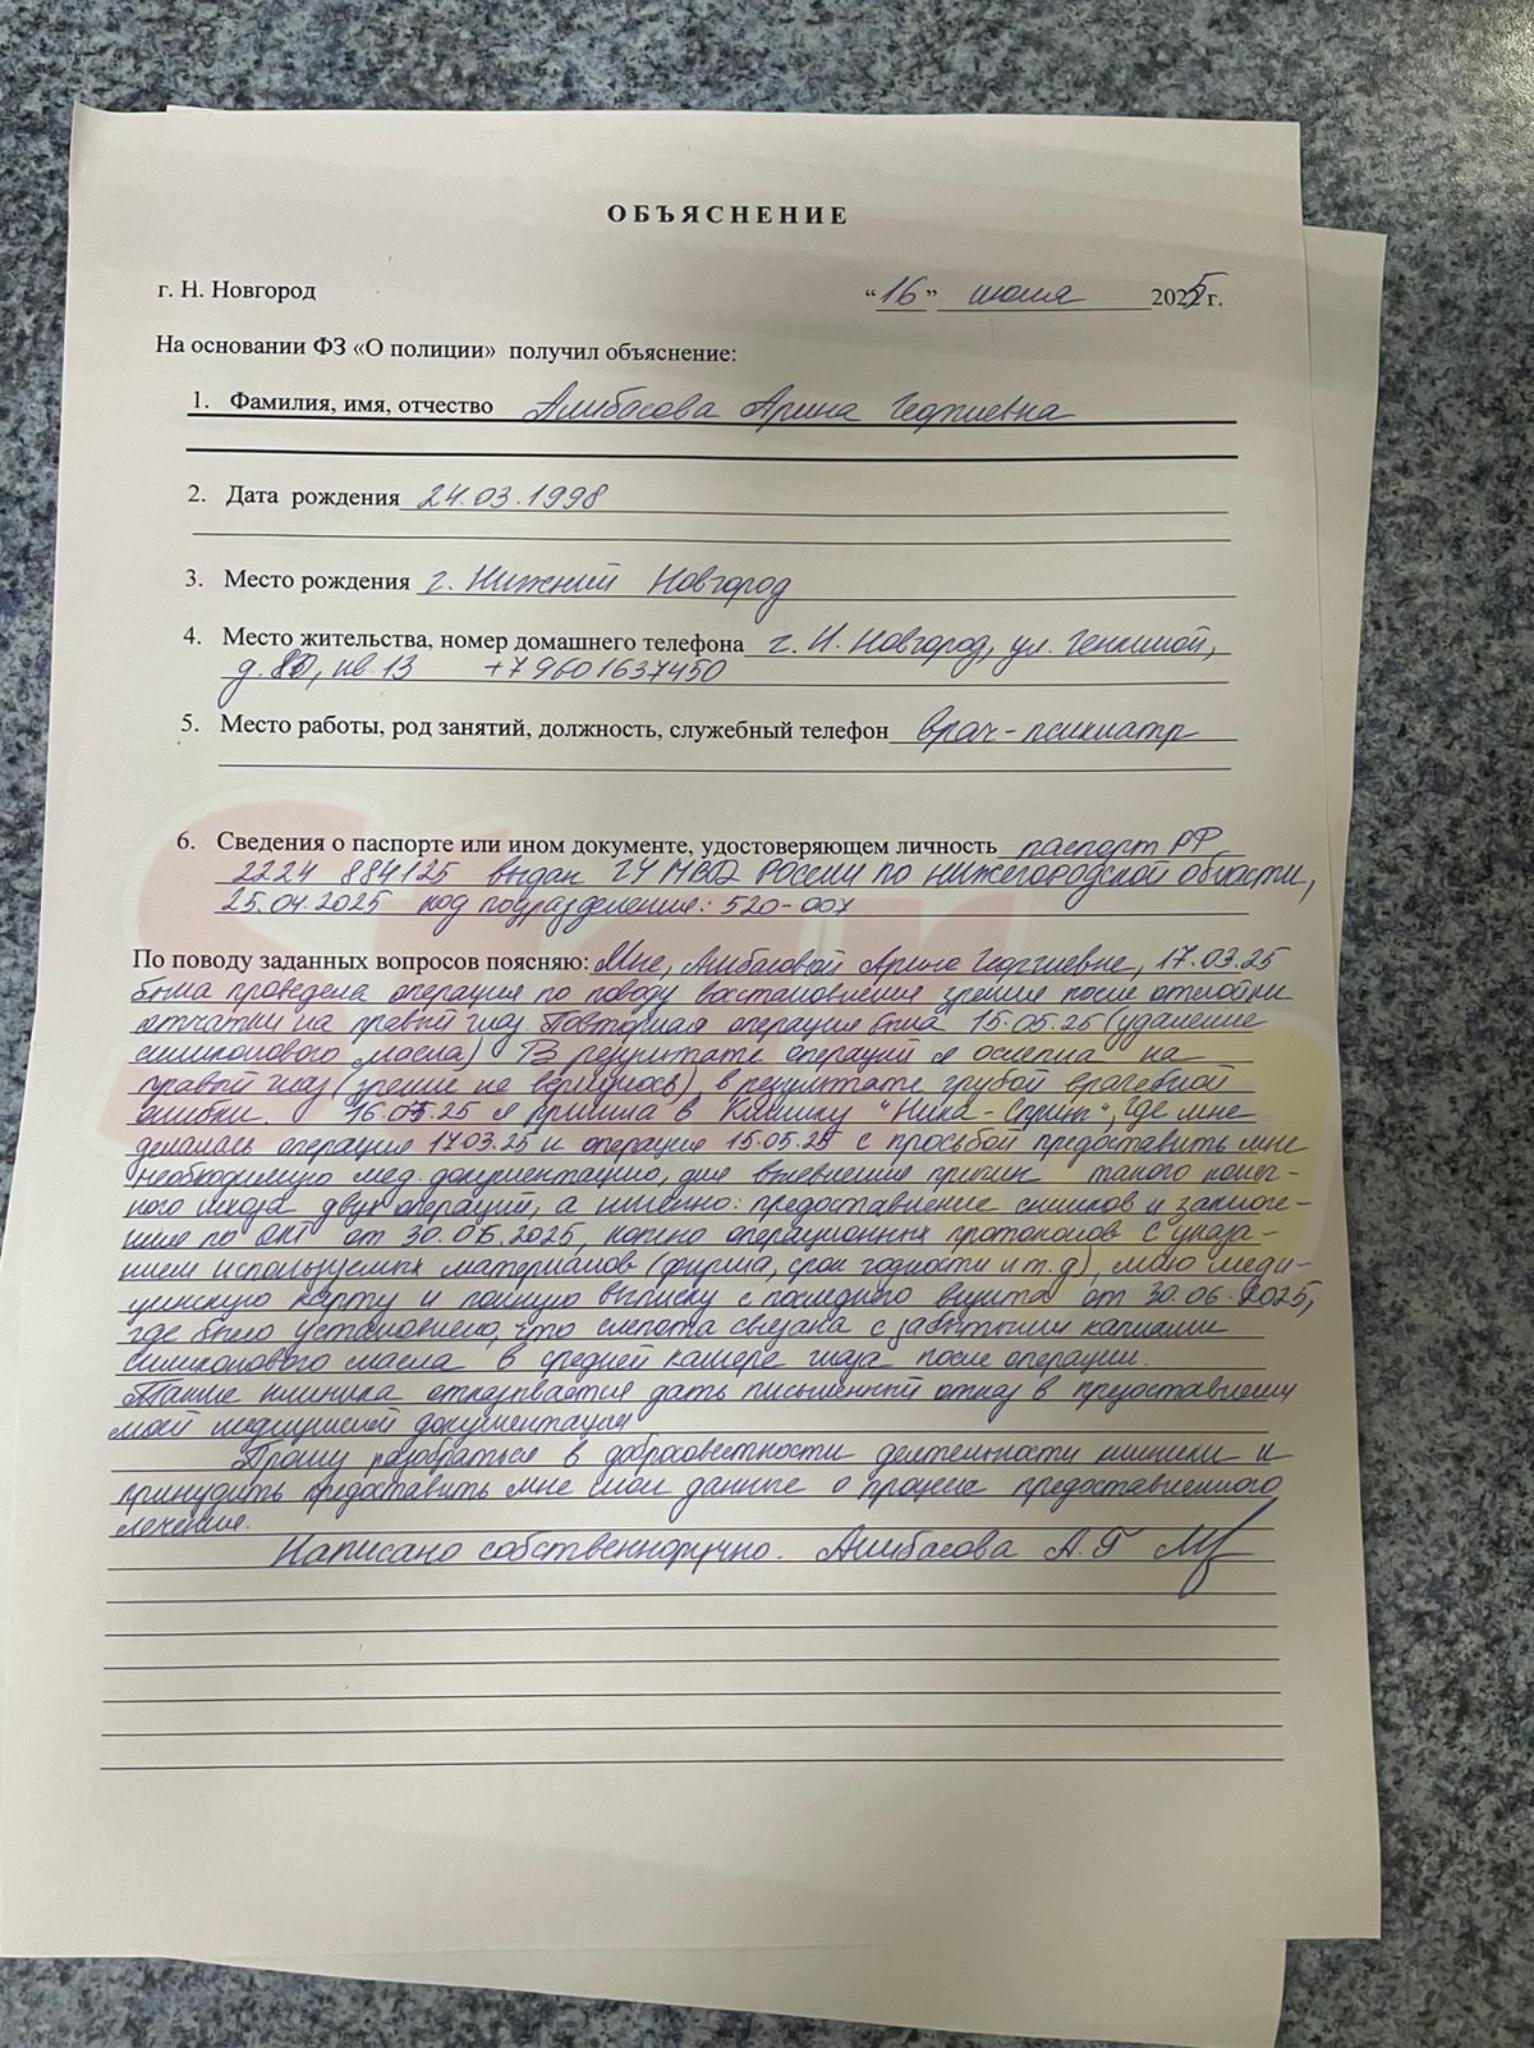 ОБЪЯСНЕНИЕ
г. Н. Новгород “16” июля 2025 г.
На основании ФЗ «О полиции» получил объяснение:
1. Фамилия, имя, отчество Алибасова Арина Георгиевна
2. Дата рождения 24.03.1998
3. Место рождения г. Нижний Новгород
4. Место жительства, номер домашнего телефона г. Н. Новгород, ул. Генкиной,
д. кв. 13 +79601637450
5. Место работы, род занятий, должность, служебный телефон врач-психиатр
6. Сведения о паспорте или ином документе, удостоверяющем личность паспорт РФ
2224 884125 выдан ГУ МВД России по Нижегородской области,
25.04.2025 код подразделения: 520-007
По поводу заданных вопросов поясняю: Мне, Алибасовой Арине Георгиевне, 17.03.25
была проведена операция по поводу восстановления зрения после отслойки
сетчатки на правый глаз. Повторная операция была 15.05.25 (удаление
силиконового масла) В результате операций я ослепла на
правый глаз (зрение не вернулось), в результате грубой врачебной
ошибки. я пришла в Клинику "Ника-Спринг", где мне
делалась операция 17.03.25 и операция 15.05.25 с просьбой предоставить мне
необходимую мед. документацию, для выявления причин такого
исхода двух операций, а именно: предоставление снимков и заключе-
ния по ОКТ от 2025, копию операционных протоколов с указа-
нием используемых материалов (фирма, срок годности и т.д), мою меди-
цинскую карту и полную выписку с последнего визита от 30.06.2025,
где было установлено, что слепота связана с забытыми каплями
силиконового масла в средней камере глаза после операции.
Также клиника отказывается дать письменный отказ в предоставлении
моей медицинской документации
Прошу разобраться в добросовестности деятельности клиники и
принудить предоставить мне мои данные о процессе предоставленного
лечения.
Написано собственноручно. Алибасова А.Г